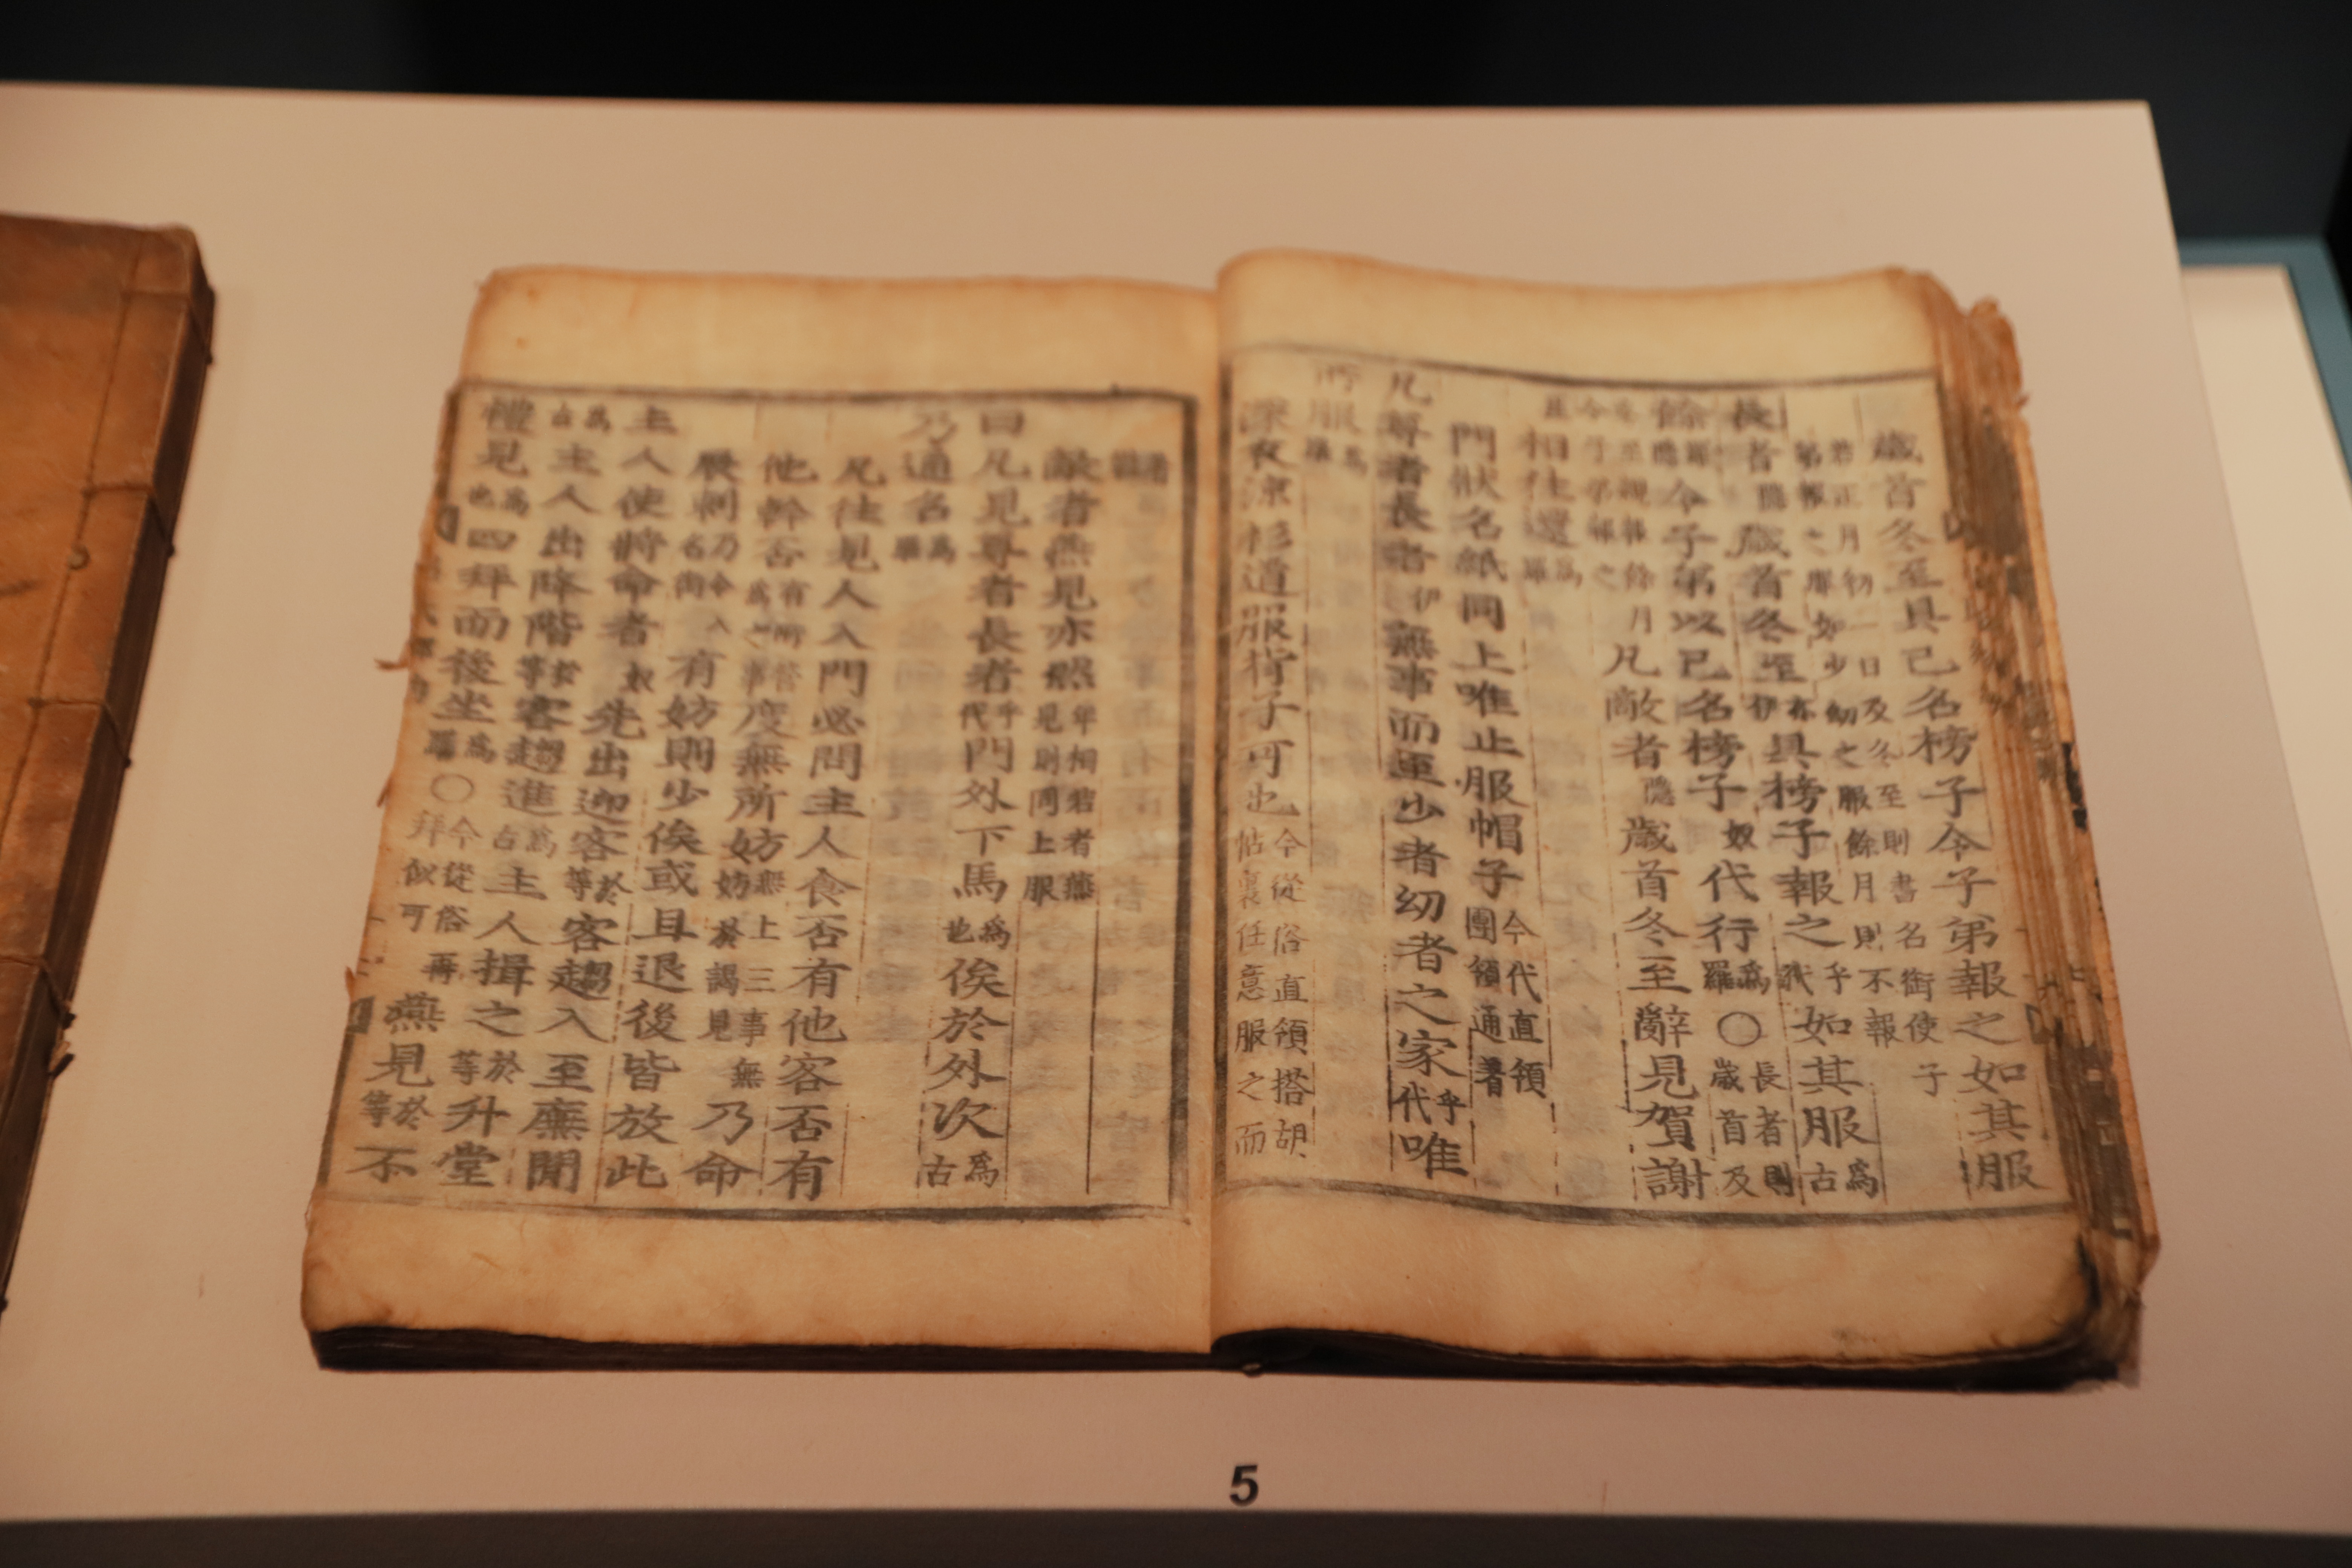 歲首冬至具己名榜子令子弟報之如其服
若正月初一日及冬至則書名銜使子
弟報之服如少幼之服餘月則不報
長者隱歲首冬至亦伊具榜子報之乎代如其服爲古
餘羅隱令子弟以己名榜子奴代行爲羅〇長者則歲首及
冬至親報餘月
令子弟報之
凡敵者隱歲首冬至辭見賀謝
相往還爲羅
門狀名紙同上唯止服帽子今代直領團領通著
凡尊者長者伊無事而至少者幼者之家乎代唯
所服爲羅
深衣涼衫道服背子可也今從俗直領搭胡帖裏任意服之而
敵者燕見亦然年相若者燕見則同上服
曰凡見尊者長者乎代門外下馬爲也俟於外次爲古
乃通名爲羅
凡往見人入門必問主人食否有他客否有
他幹否有所營爲之事度無所妨無上三事無妨於謁見乃命
展刺乃令入有妨則少俟或且退後皆放此
主人使將命者奴先出迎客於等客趨入至廡間
爲古主人出降階客趨進爲古主人揖之於等升堂
禮見爲也四拜而後坐爲羅〇今從俗再拜似可燕見於等不
5